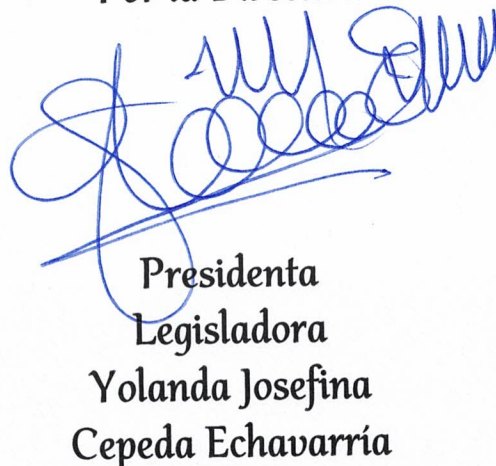 Presidenta
Legisladora
Yolanda Josefina
Cepeda Echavarría